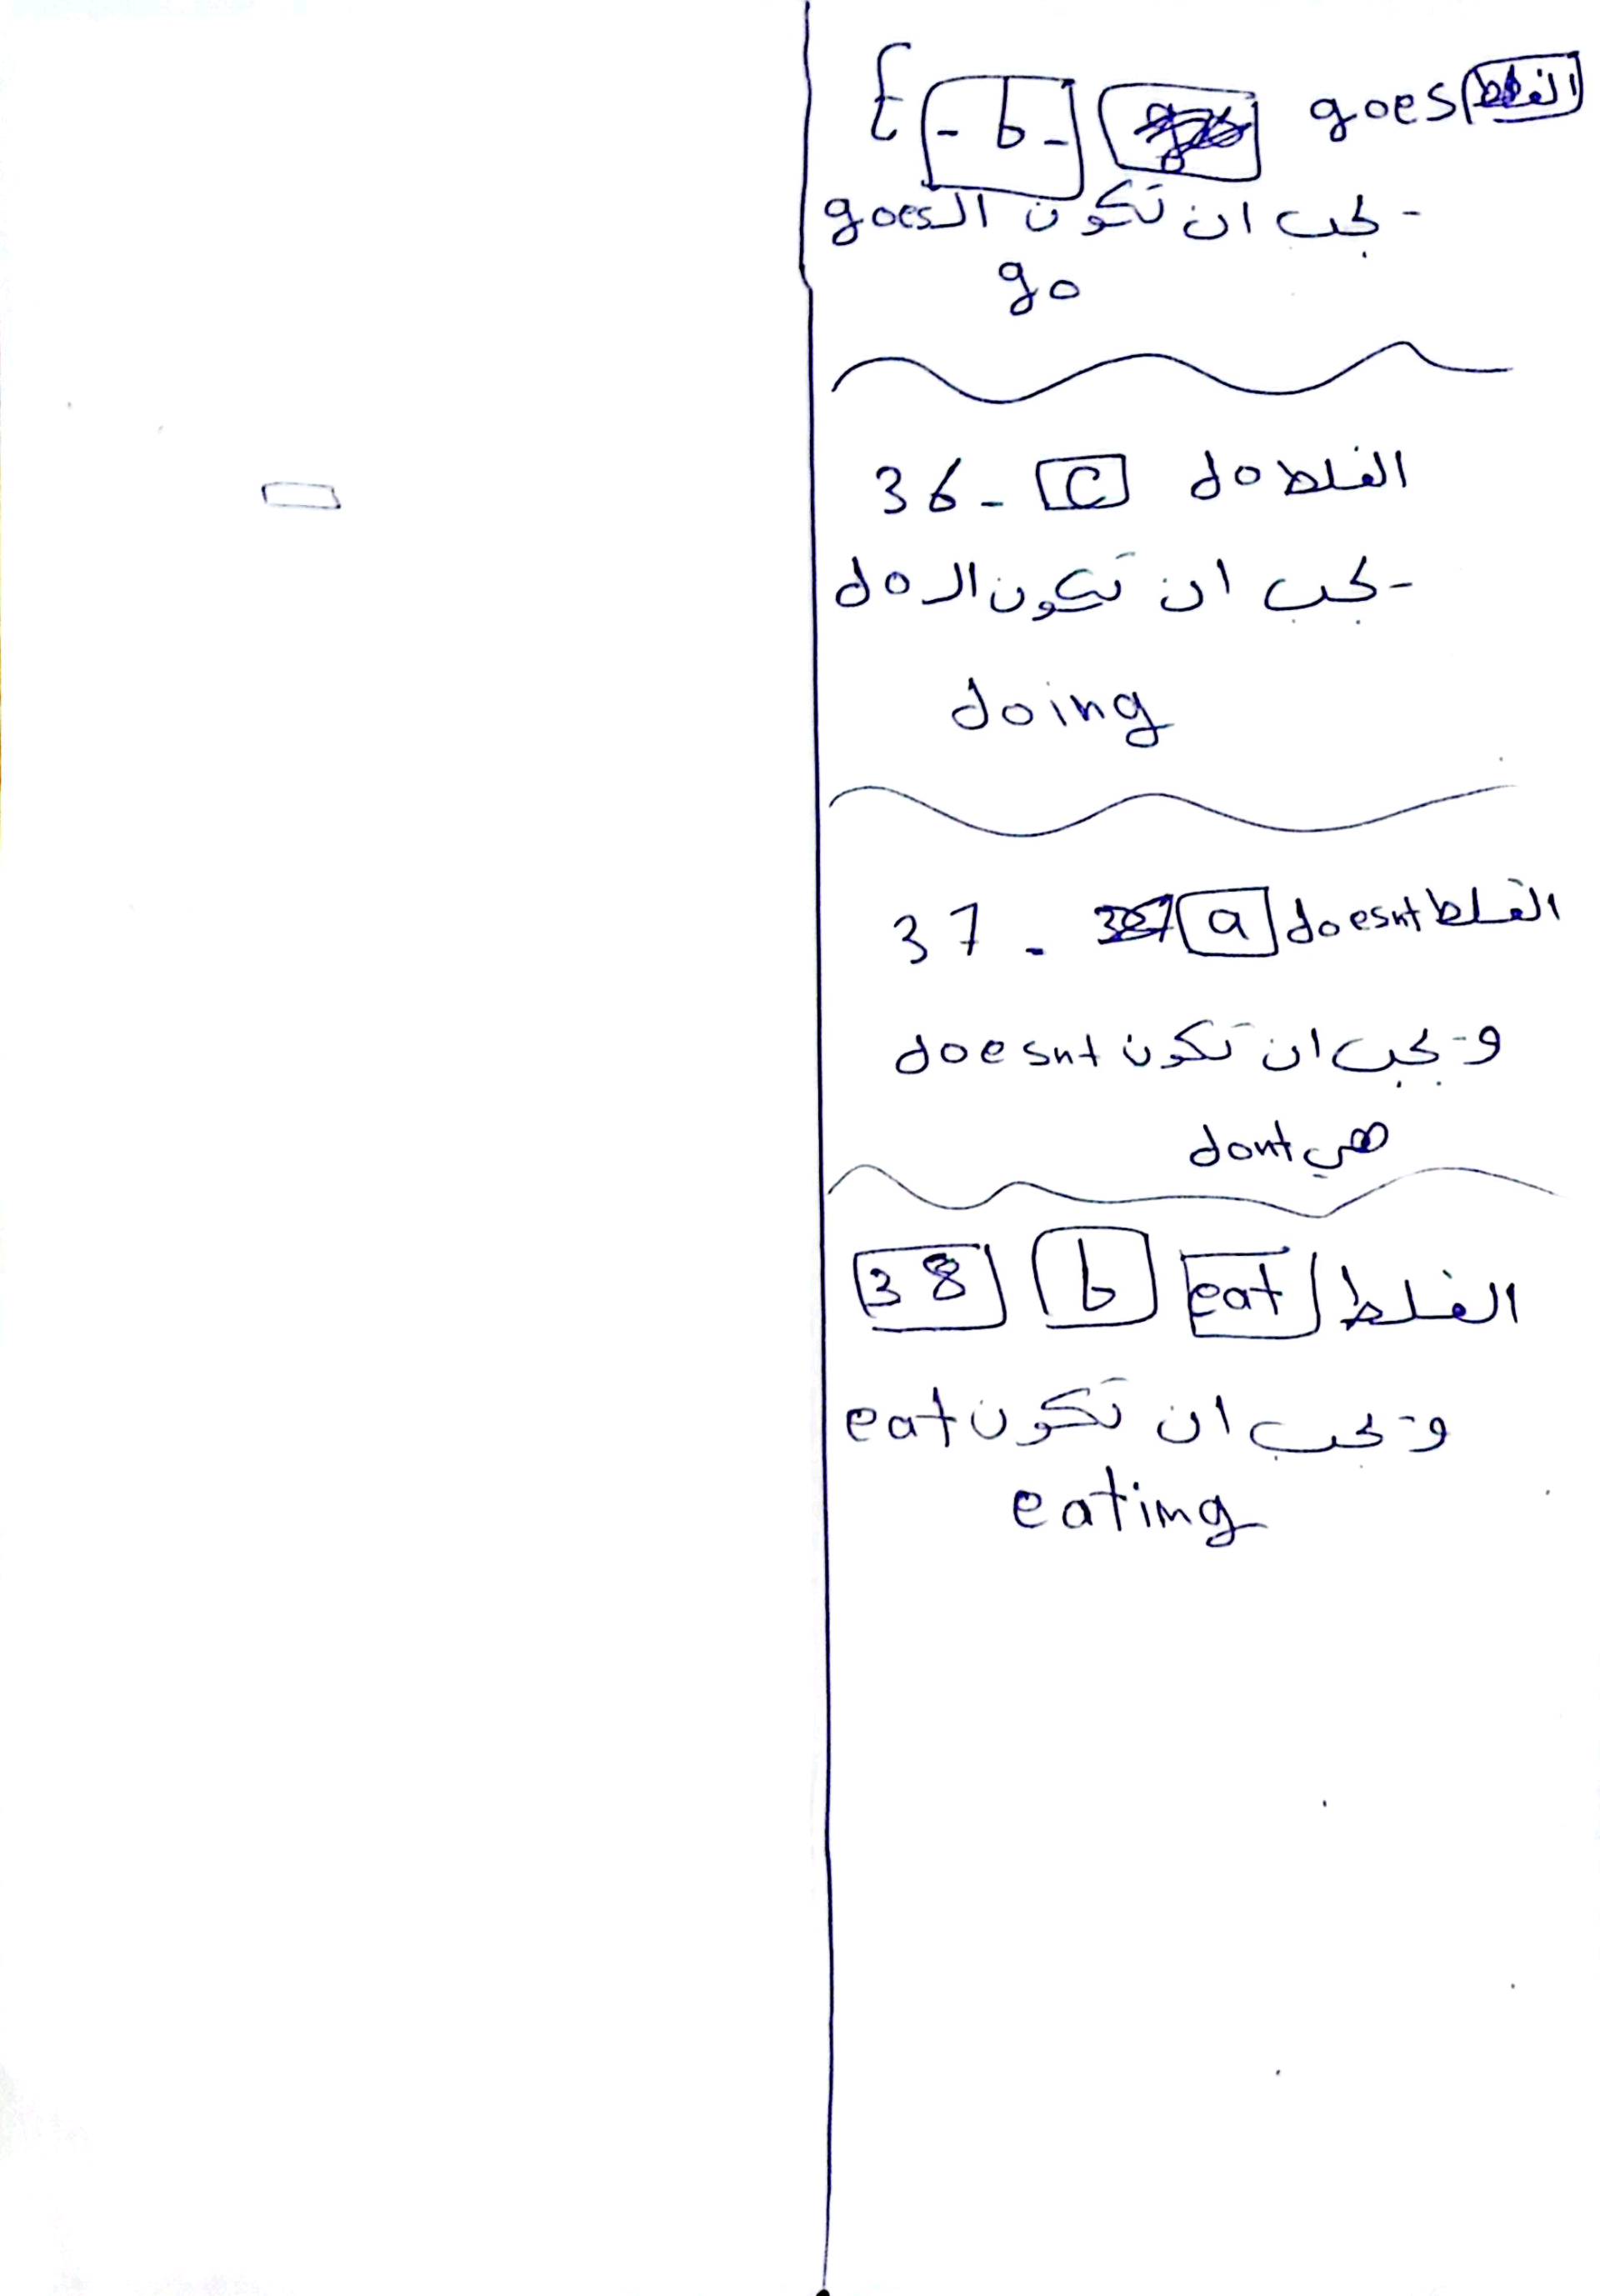 { - b - goes الغلط
- يجب ان تكون الـ goes
go
36 - c do الغلط
- يجب ان تكون الـ do
doing
37 - a doesnt الغلط
و - يجب ان تكون doesnt
هي dont
38 b eat الغلط
و - يجب ان تكون eat
eating